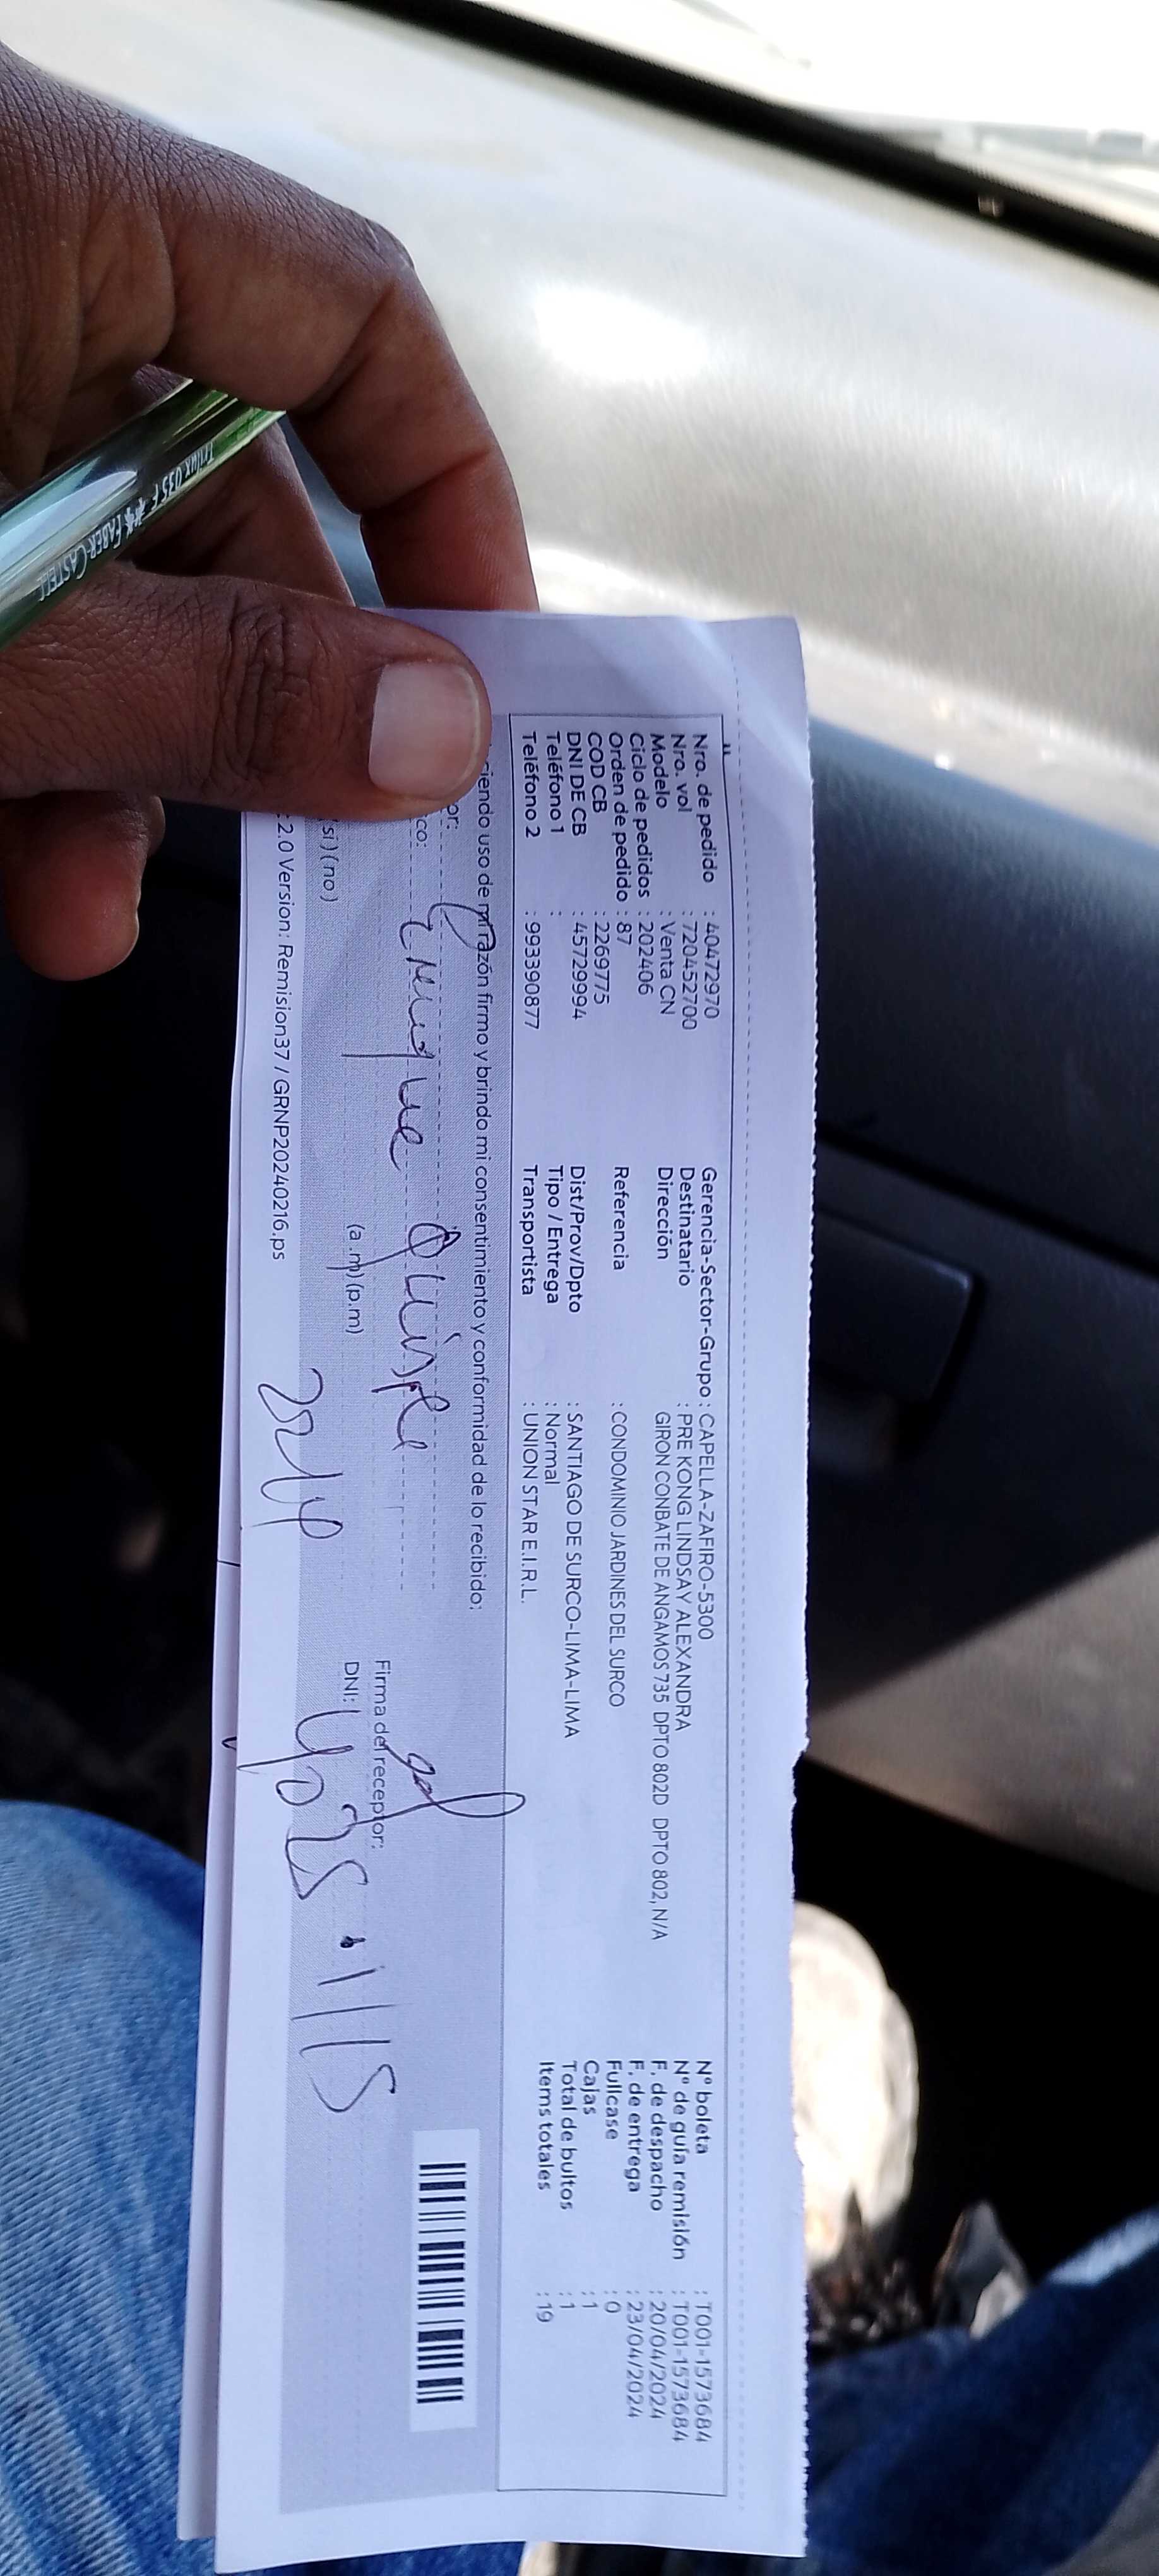 Nro. de pedido : 40472970
Nro. vol : 720452700
Modelo : Venta CN
Ciclo de pedidos : 202406
Orden de pedido : 87
COD CB : 2269775
DNI DE CB : 45729994
Teléfono 1 :
Teléfono 2 : 993390877
Gerencia-Sector-Grupo : CAPELLA-ZAFIRO-5300
Destinatario : PRE KONG LINDSAY ALEXANDRA
Dirección GIRON CONBATE DE ANGAMOS 735 DPTO 802D DPTO 802, N/A
Referencia : CONDOMINIO JARDINES DEL SURCO
Dist/Prov/Dpto : SANTIAGO DE SURCO-LIMA-LIMA
Tipo / Entrega : Normal
Transportista : UNION STAR E.I.R.L.
N° boleta : T001-1573684
N° de guía remisión : T001-1573684
F. de despacho : 20/04/2024
F. de entrega : 23/04/2024
Fullcase : 0
Cajas : 1
Total de bultos : 1
Items totales : 19
ciendo uso de mi razón firmo y brindo mi consentimiento y conformidad de lo recibido:
or:
co: Enrique Quispe
Firma del receptor:
(si) (no) (a.m) (p.m)
DNI:
2.0 Version: Remision37 / GRNP20240216.ps
Trilux 035 F FABER-CASTELL